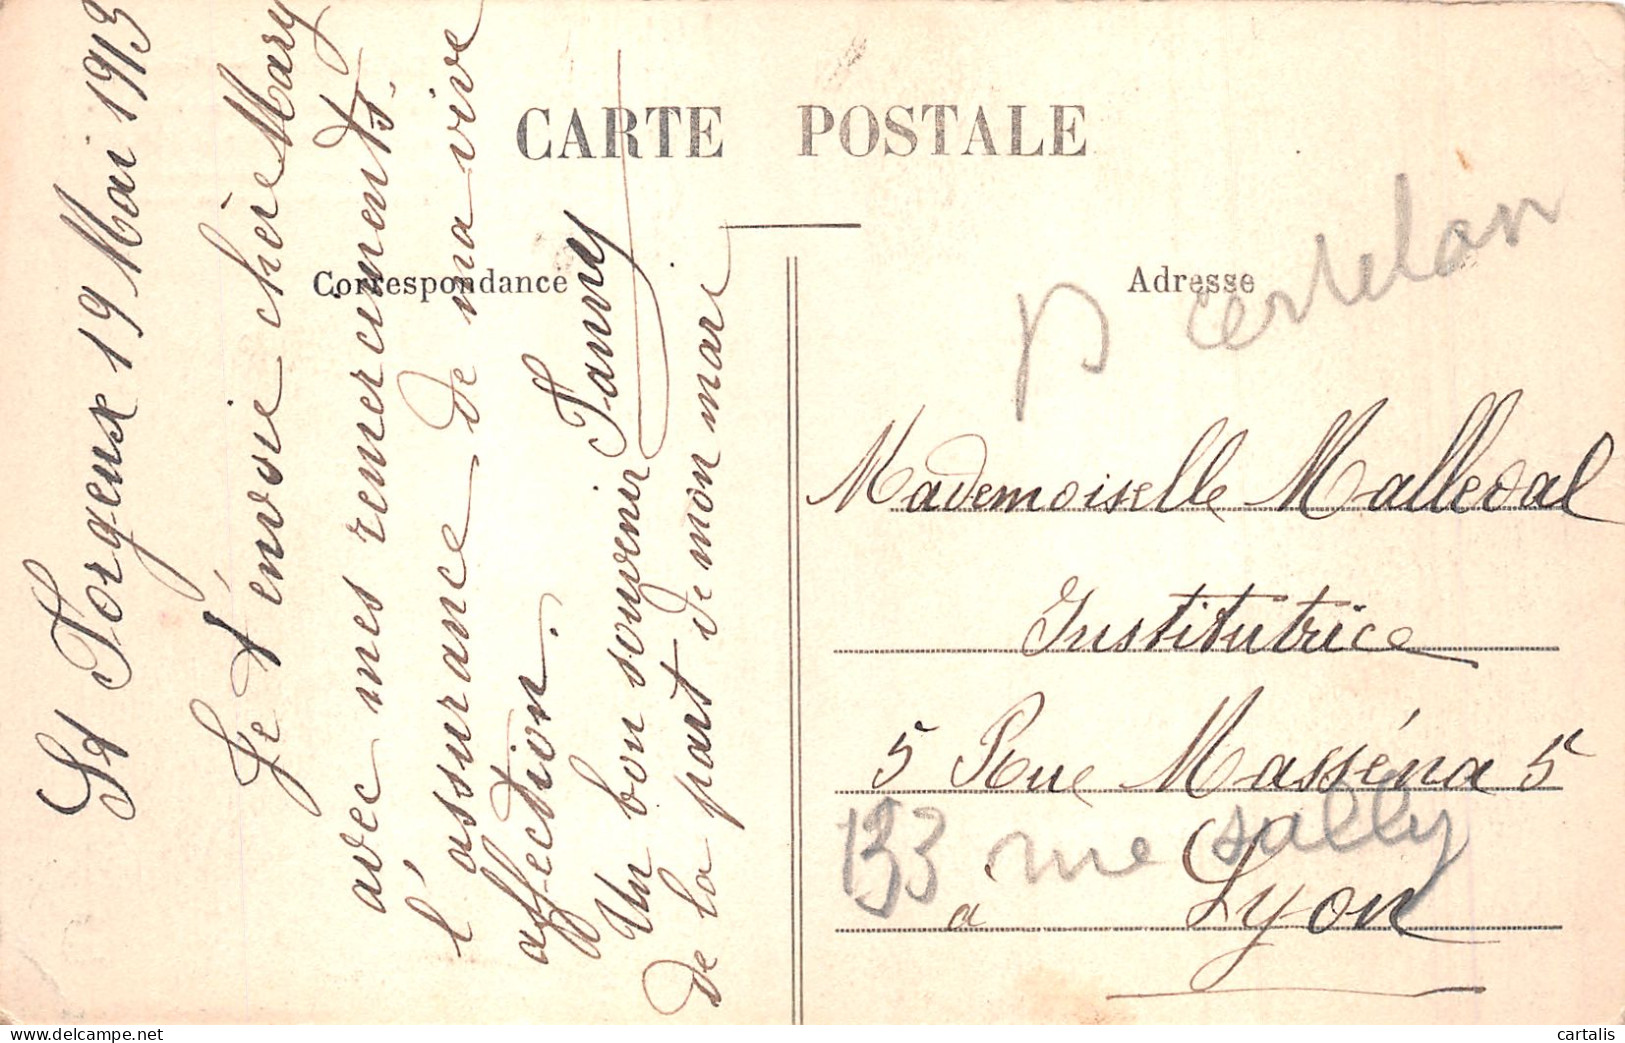 CARTE POSTALE
Correspondance
Adresse
St Forgeux 19 Mai 1913
Je t'envoie chère Mary
avec mes remerciments
l'assurance de ma vive
affection.
Fanny
Un bon souvenir
de la part de mon mari
Mademoiselle Malleval
Institutrice
5 Rue Masséna 5
133 rue sully
à Lyon
cartalis